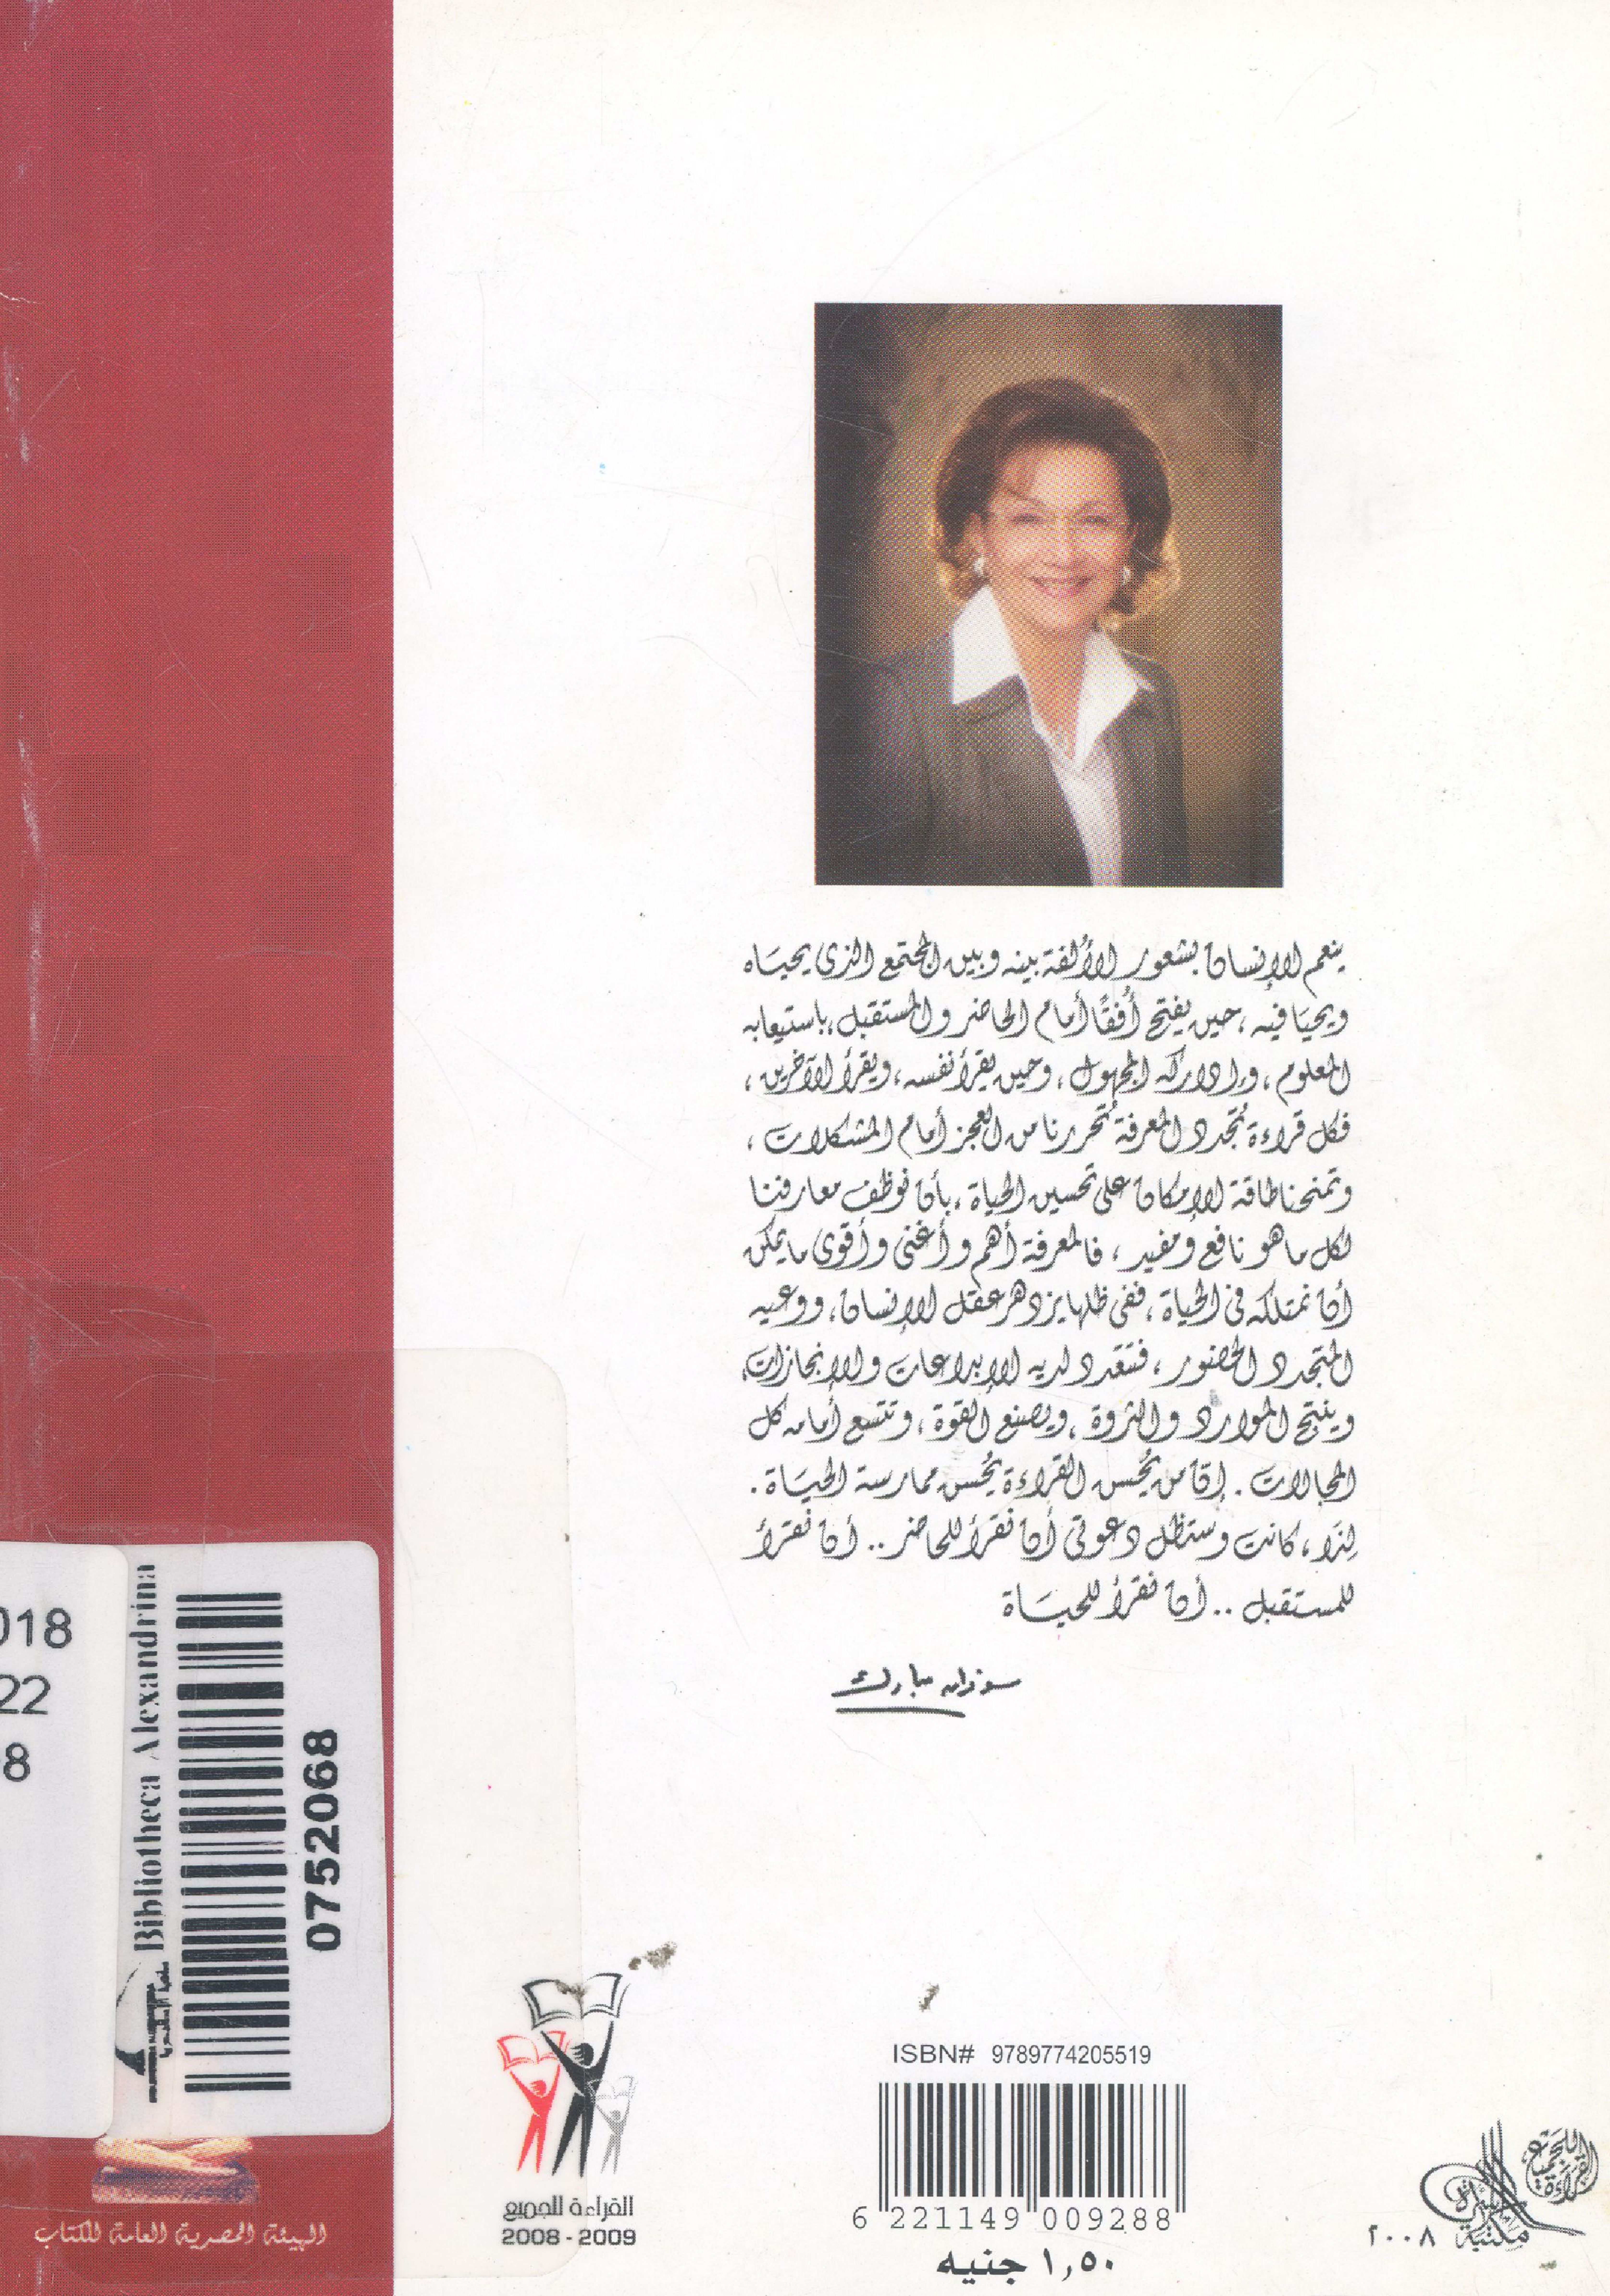 ينعم الإنسان بشعور الألفة بينه وبين المجتمع الذى يحياه
ويحيا فيه ، حين يفتح أُفقًا أمام الحاضر والمستقبل ، باستيعابه
المعلوم ، وإدراكه المجهول ، وحين يقرأ نفسه ، ويقرأ الآخرين ،
فكل قراءة تُجدد المعرفة تُحررنا من العجز أمام المشكلات ،
وتمنحنا طاقة الإمكان على تحسين الحياة ، بأن نوظف معارفنا
لكل ما هو نافع ومفيد ، فالمعرفة أهم وأغنى وأقوى ما يمكن
أن نمتلكه فى الحياة ، ففى ظلها يزدهر عقل الإنسان ، ووعيه
المتجدد الحضور ، فتتعدد لديه الإبداعات والإنجازات ،
وينتج الموارد والثروة ، ويصنع القوة ، وتتسع أمامه كل
المجالات . إن من يُحسن القراءة يُحسن ممارسة الحياة .
لِذَا ، كانت وستظل دعوتى أن نقرأ للحاضر .. أن نقرأ
للمستقبل .. أن نقرأ للحياة
سوزان مبارك
018
22
8
Bibliotheca Alexandrina
مكتبة الإسكندرية
0752068
الهيئة المصرية العامة للكتاب
القراءة للجميع
2008 - 2009
ISBN# 9789774205519
6 221149 009288
١,٥٠ جنيه
القراءة للجميع
مكتبة الأسرة
٢٠٠٨